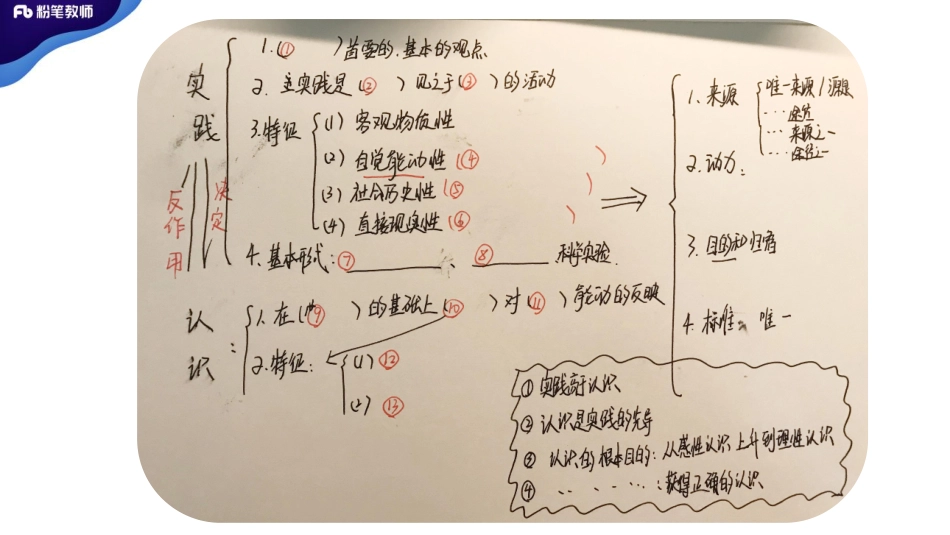 粉笔教师
实践
反作用
决定
1.(① )首要的、基本的观点
2. 实践是(② )见之于(③ )的活动
3.特征
(1) 客观物质性
(2) 自觉能动性(④ )
(3) 社会历史性(⑤ )
(4) 直接现实性(⑥ )
4.基本形式:⑦________、⑧________科学实验
1.来源
唯一来源/源泉
……途径
……来源之一
……途径之一
2.动力:
3.目的和归宿
4.标准: 唯一
认识:
1.在(⑨ )的基础上(⑩ )对(⑪ )能动的反映
2.特征:
(1)⑫
(2)⑬
①实践高于认识
②认识是实践的先导
③认识的根本目的:从感性认识上升到理性认识
④……:获得正确的认识